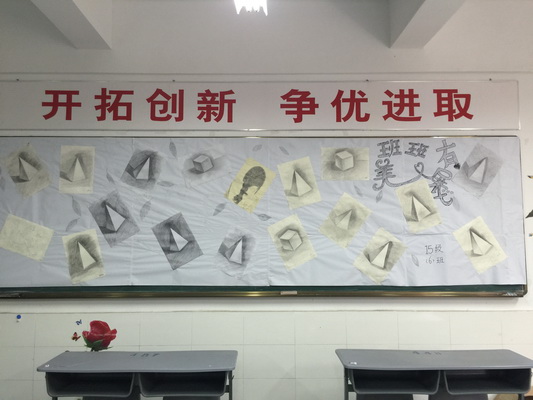 开拓创新 争优进取
班班有
美义展
15级
16班